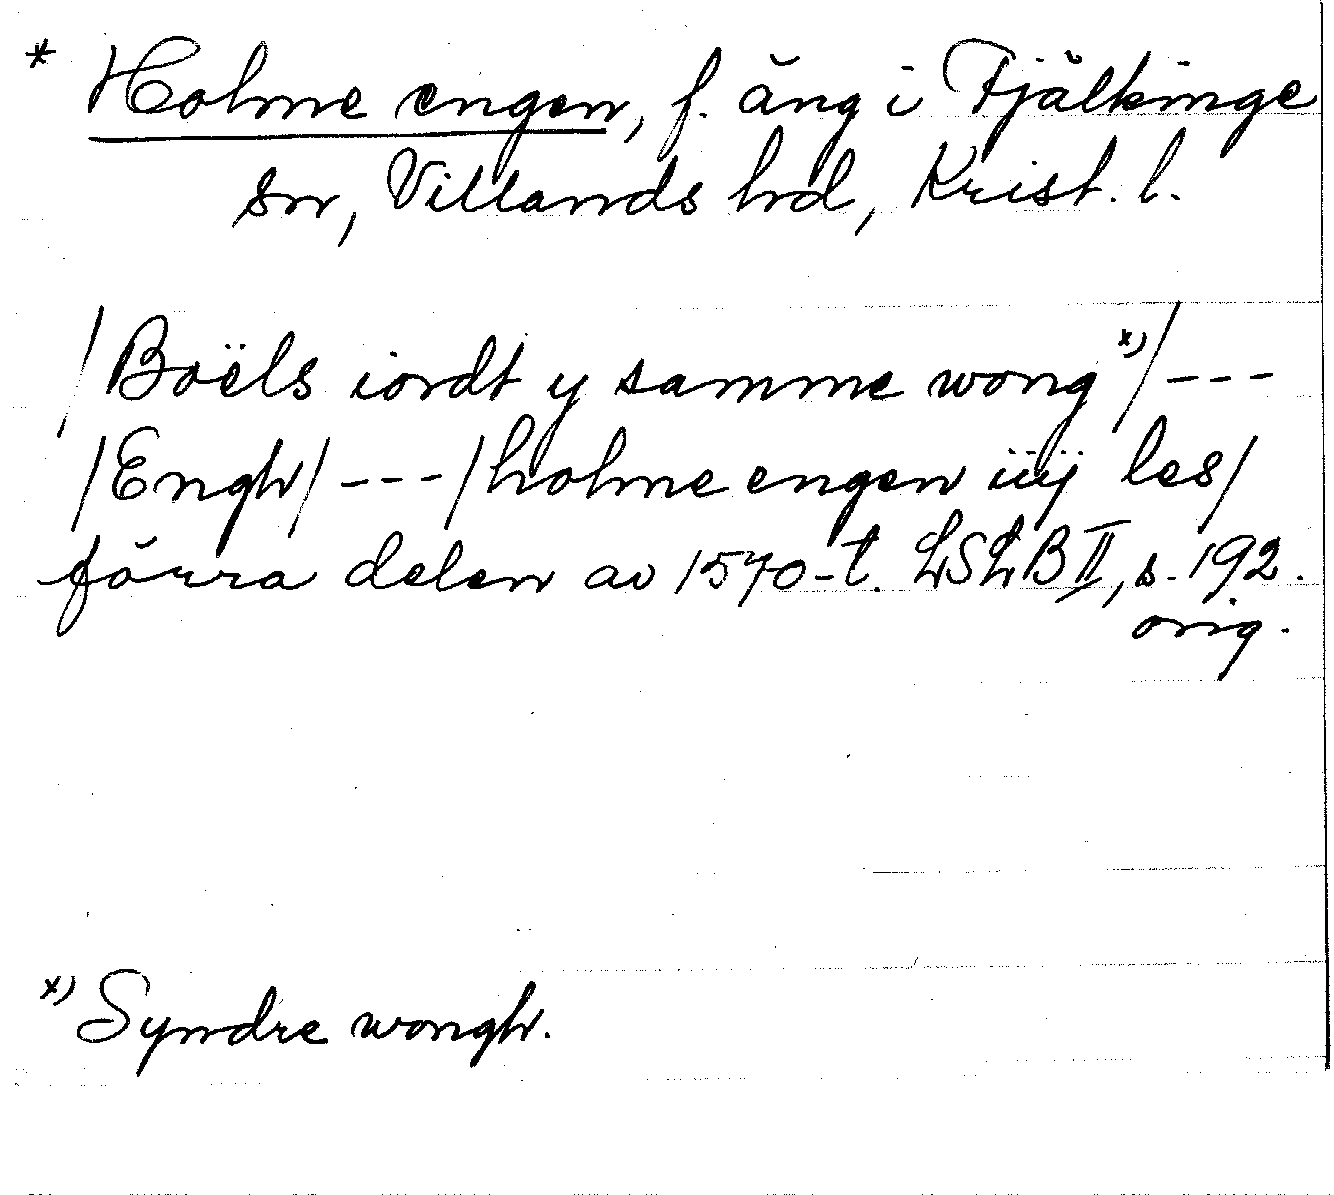 * Holme engen, f. äng i Fjälkinge
sn, Villands hd, Krist. l.
/Boëls iordt y samme wong x)/ ---
/Engh/ --- /holme engen iiij les/
förra delen av 1570-t. LSLB II, s. 192.
orig.
x) Syndre wongh.